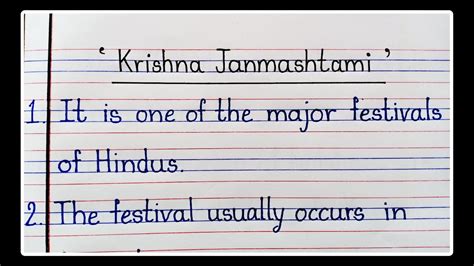 ‘ Krishna Janmashtami ’
1. It is one of the major festivals
of Hindus.
2. The festival usually occurs in